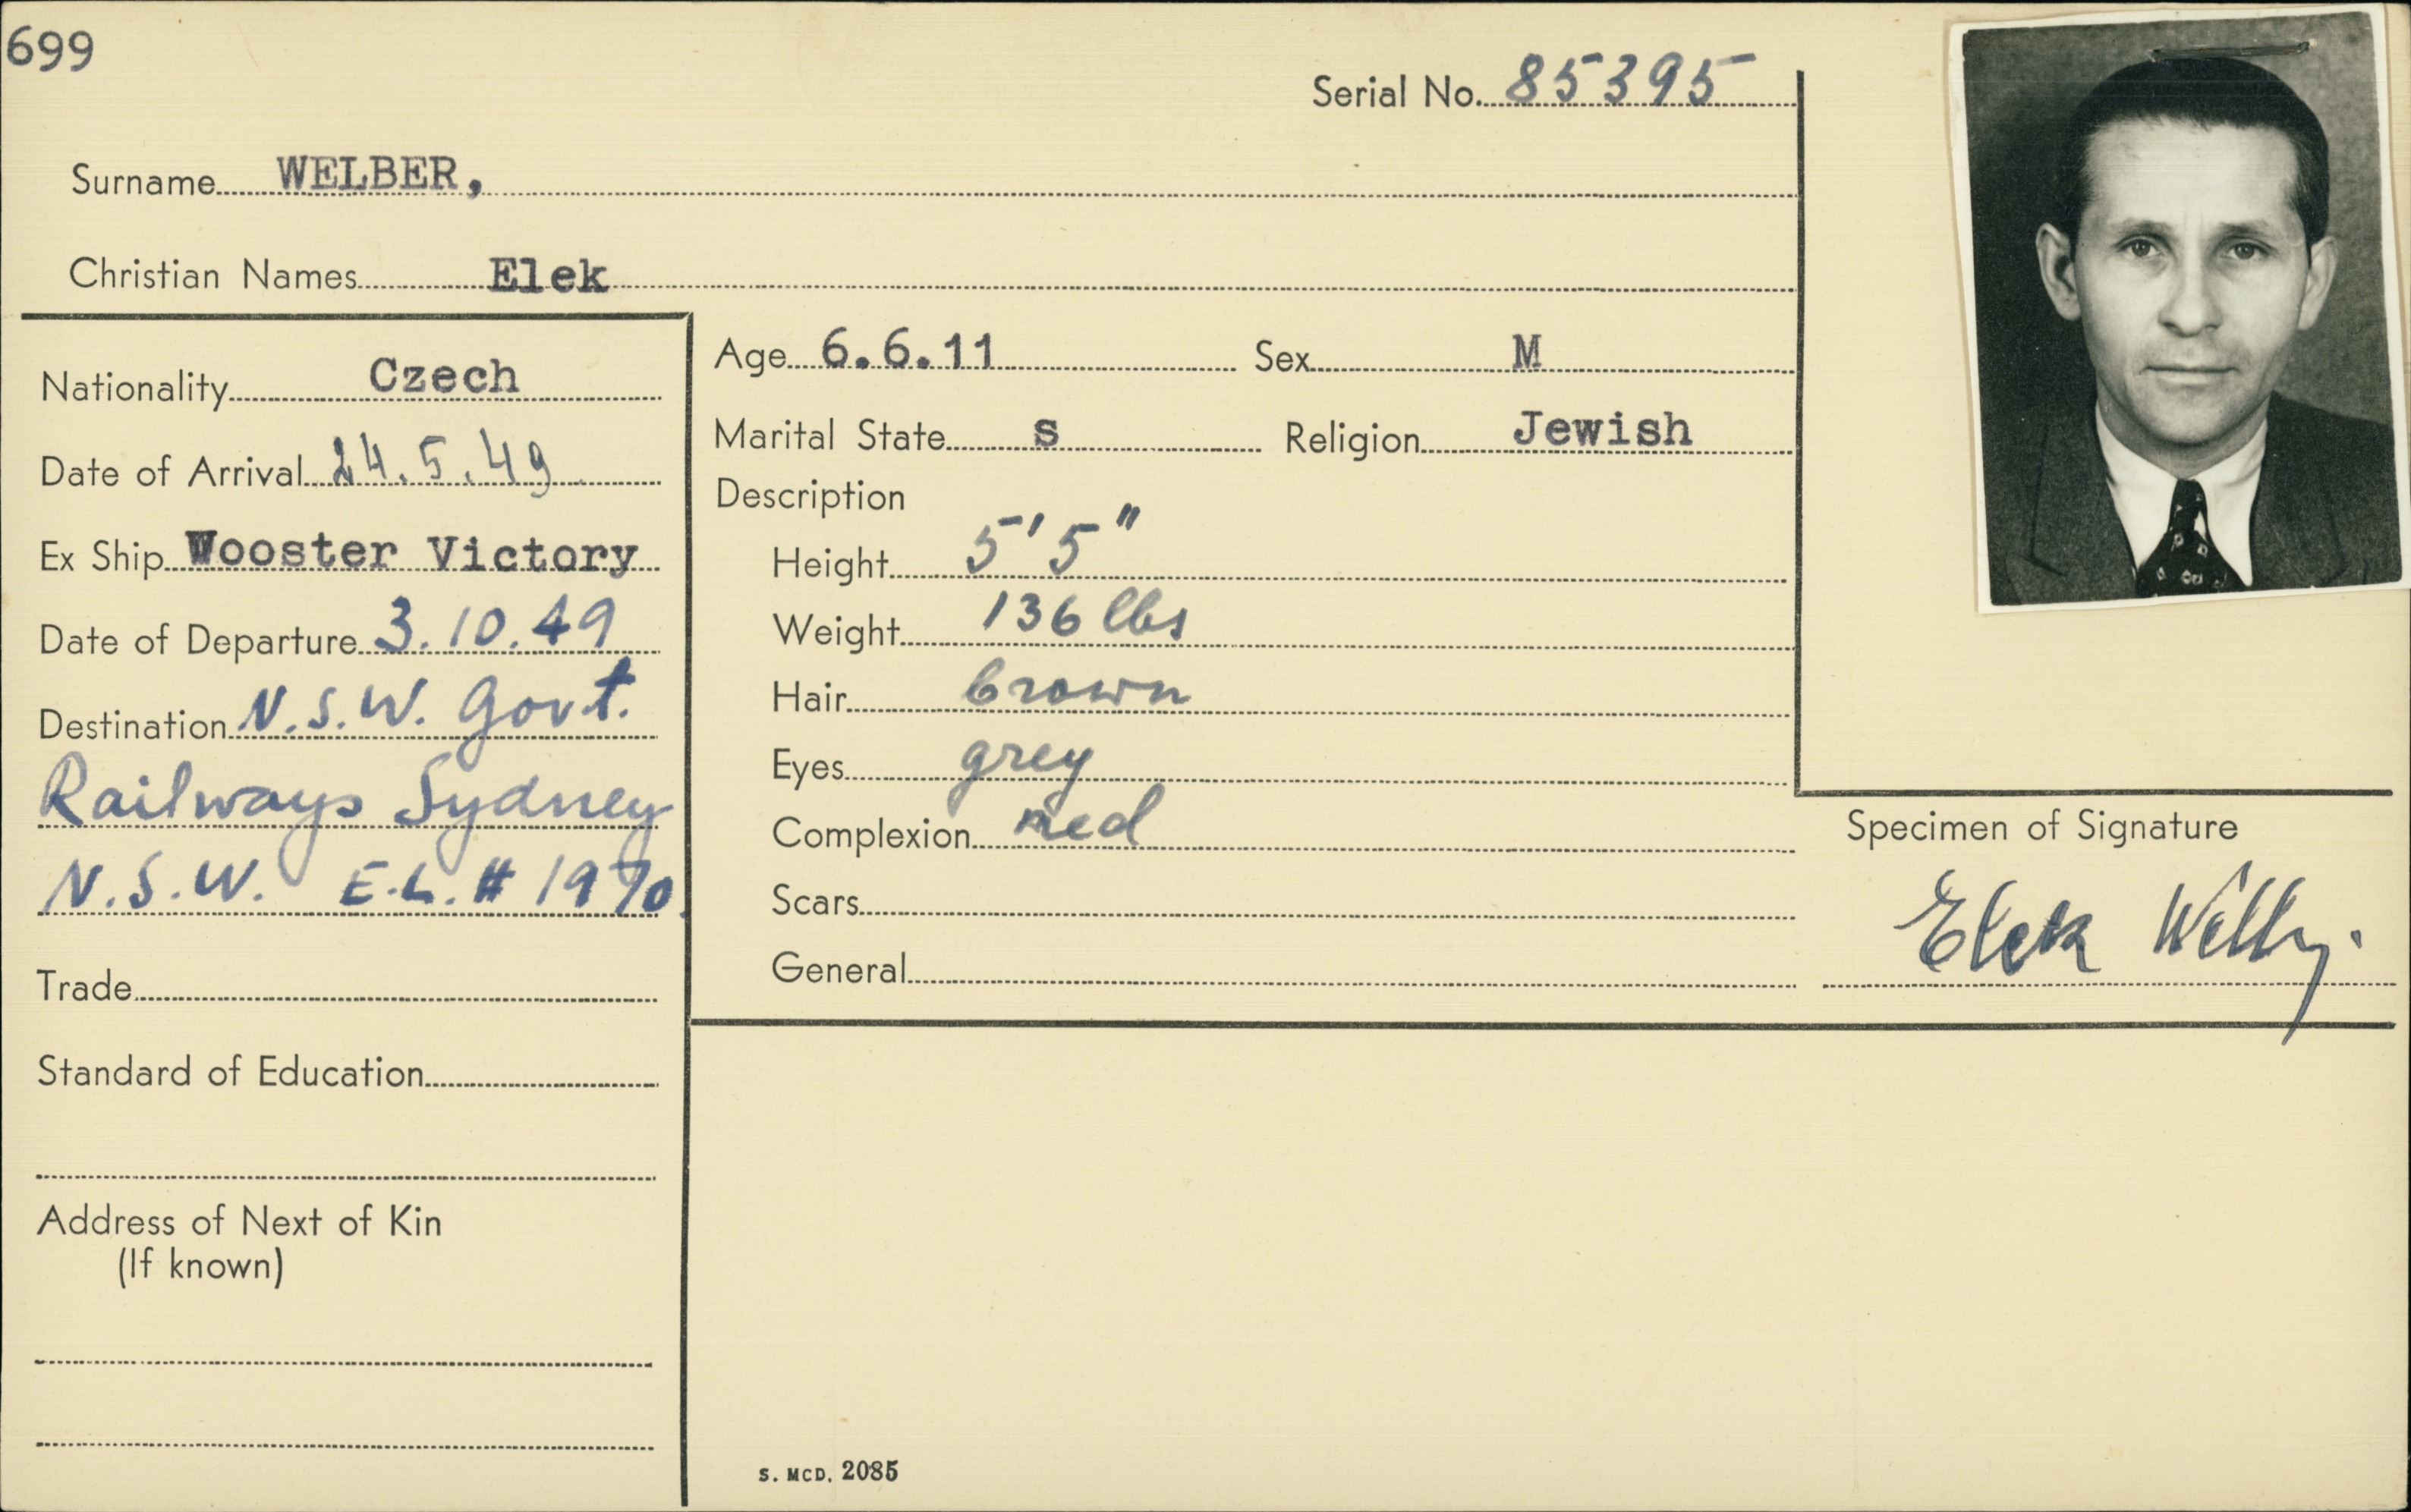 699
Serial No. 85395
Surname WELBER,
Christian Names Elek
Nationality Czech
Date of Arrival 24.5.49
Ex Ship Wooster Victory
Date of Departure 3.10.49
Destination N.S.W. Govt.
Railways Sydney
N.S.W. E.L. # 1970.
Trade
Standard of Education
Address of Next of Kin
(If known)
Age 6.6.11 Sex M
Marital State s Religion Jewish
Description
Height 5'5"
Weight 136 lbs
Hair brown
Eyes grey
Complexion med
Scars
General
Specimen of Signature
Elek
S. MCD. 2085